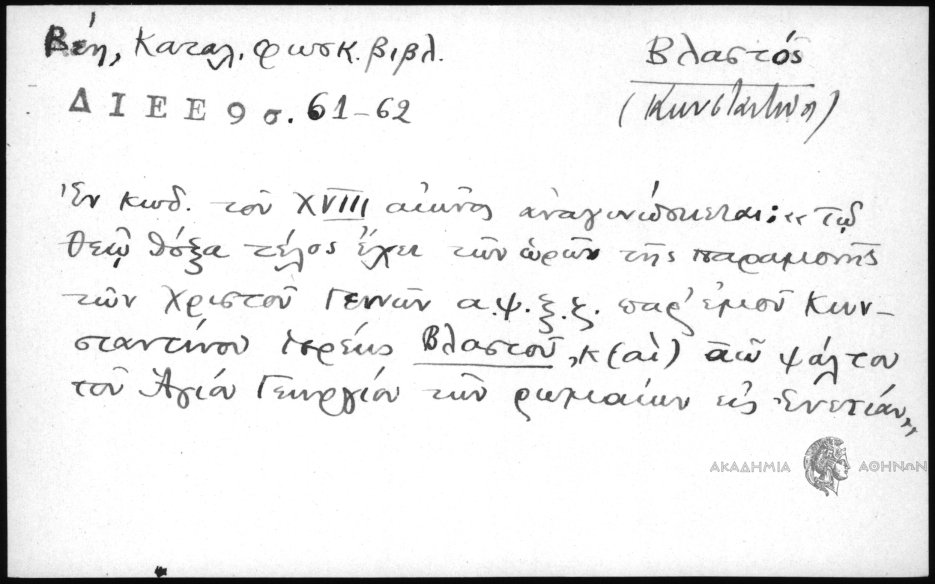 Βέη, Καταλ. φωσκ. βιβλ.
Βλαστός
ΔΙΕΕ 9 σ. 61-62
(Κωνσταντίνος)
Ἐν κωδ. τοῦ XVIII αἰῶνος ἀναγινώσκεται: «τῷ
θεῷ δόξα τέλος ἔχει τῶν ὡρῶν τῆς παραμονῆς
τῶν Χριστοῦ Γεννῶν α.ψ.ξ.ζ. παρ' ἐμοῦ Κων-
σταντίνου ἱερέως Βλαστοῦ, κ(αὶ) ψάλτου
τοῦ Ἁγίου Γεωργίου τῶν ρωμαίων εἰς Ἐνετίαν»
ΑΚΑΔΗΜΙΑ ΑΘΗΝΩΝ